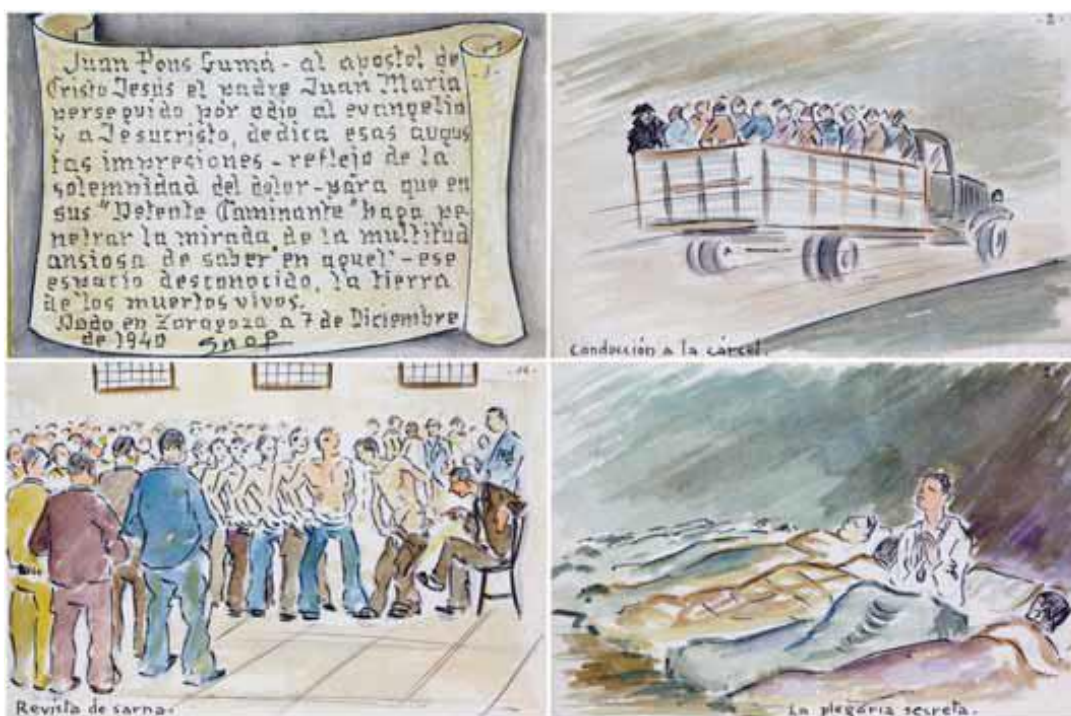 Juan Pons Gumá - al apostol de
Cristo Jesús el padre Juan María
perseguido por odio al evangelio
y a Jesucristo, dedica esas augus
tas impresiones - reflejo de la
solemnidad del dolor - para que en
sus "Detente Caminante" haga pe-
netrar la mirada de la multitud
ansiosa de saber en aquel - ese
espacio desconocido, la tierra
de los muertos vivos.
Dado en Zaragoza a 7 de Diciembre
de 1940 Snop
-1-
-2-
Conducción a la cárcel.
Revista de sarna.
La plegaria secreta.